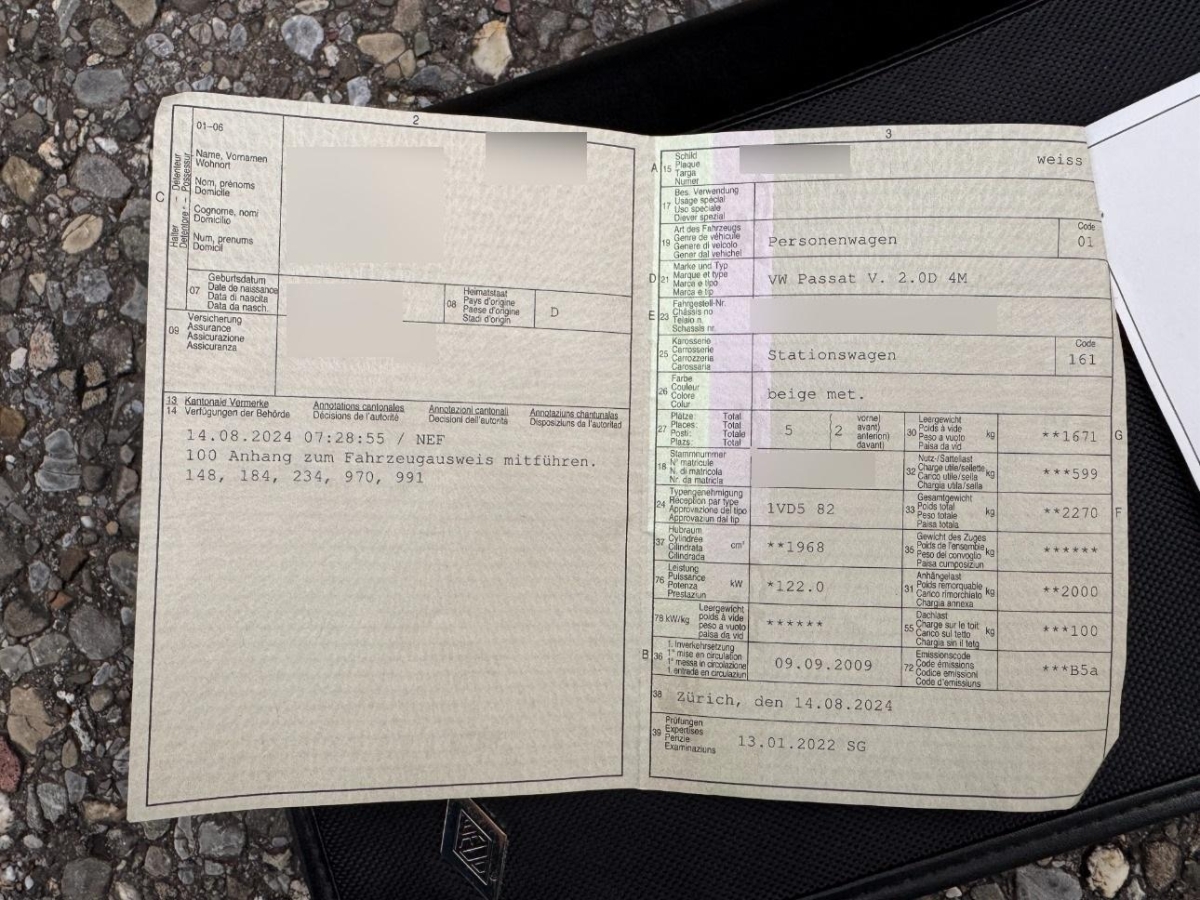 2
01-06
C
Halter - Détenteur
Detentore - Possessur
Name, Vornamen
Wohnort
Nom, prénoms
Domicile
Cognome, nomi
Domicilio
Num, prenums
Domicil
07
Geburtsdatum
Date de naissance
Data di nascita
Data da nasch.
08
Heimatstaat
Pays d'origine
Paese d'origine
Stadi d'origin
D
09
Versicherung
Assurance
Assicurazione
Assicuranza
13 Kantonale Vermerke
14 Verfügungen der Behörde
Annotations cantonales
Décisions de l'autorité
Annotazioni cantonali
Decisioni dell'autorità
Annotaziuns chantunalas
Disposiziuns da l'autoritad
14.08.2024 07:28:55 / NEF
100 Anhang zum Fahrzeugausweis mitführen.
148, 184, 234, 970, 991
3
A 15
Schild
Plaque
Targa
Numer
weiss
17
Bes. Verwendung
Usage spécial
Uso speciale
Diever spezial
19
Art des Fahrzeugs
Genre de véhicule
Genere di veicolo
Gener dal vehichel
Personenwagen
Code
01
D 21
Marke und Typ
Marque et type
Marca e tipo
Marca e tip
VW Passat V. 2.0D 4M
E 23
Fahrgestell-Nr.
Châssis no
Telaio n.
Schassis nr.
25
Karosserie
Carrosserie
Carrozzeria
Carossaria
Stationswagen
Code
161
26
Farbe
Couleur
Colore
Colur
beige met.
27
Plätze: Total
Places: Total
Posti: Totale
Plazs: Total
5
(2
vorne)
avant)
anteriori)
davant)
30
Leergewicht
Poids à vide
Peso a vuoto
Paisa da vid
kg
**1671
G
18
Stammnummer
N° matricule
N. di matricola
Nr. da matricla
32
Nutz-/Sattellast
Charge utile/sellette
Carico utile/sella
Chargia utila/sella
kg
***599
24
Typengenehmigung
Réception par type
Approvazione del tipo
Approvaziun dal tip
1VD5 82
33
Gesamtgewicht
Poids total
Peso totale
Paisa totala
kg
**2270
F
37
Hubraum
Cylindrée
Cilindrata
Cilindrada
cm³
**1968
35
Gewicht des Zuges
Poids de l'ensemble
Peso del convoglio
Paisa cumposiziun
kg
******
76
Leistung
Puissance
Potenza
Prestaziun
kW
*122.0
31
Anhängelast
Poids remorquable
Carico rimorchiato
Chargia annexa
kg
**2000
78 kW/kg
Leergewicht
poids à vide
peso a vuoto
paisa da vid
******
55
Dachlast
Charge sur le toit
Carico sul tetto
Chargia sin il tetg
kg
***100
B 36
1. Inverkehrsetzung
1re mise en circulation
1a messa in circolazione
1. entrada en circulaziun
09.09.2009
72
Emissionscode
Code émissions
Codice emissioni
Code d'emissiuns
***B5a
38
Zürich, den 14.08.2024
39
Prüfungen
Expertises
Perizie
Examinaziuns
13.01.2022 SG